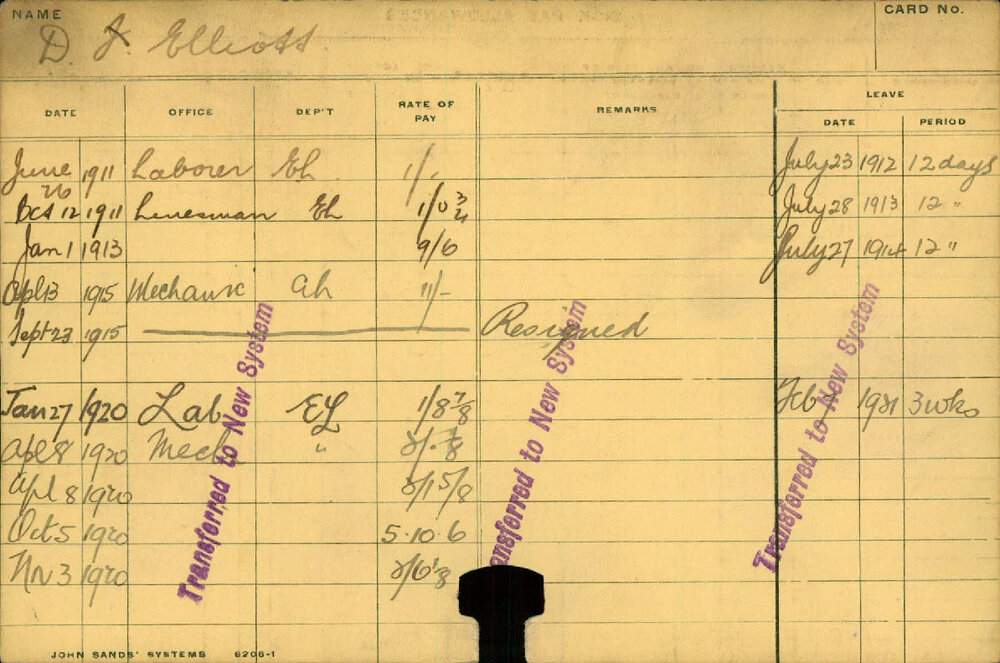 NAME
CARD No.
D. J. Elliott.
DATE OFFICE DEP'T RATE OF PAY REMARKS LEAVE
DATE PERIOD
June 26 1911 Laborer EL 1/. July 23 1912 12 days
Oct 12 1911 Linesman EL 1/0 3/4 July 28 1913 12 "
Jan 1 1913 9/6 July 27 1914 12 "
Apl 13 1915 Mechanic 11/-
Sept 23 1915 Resigned
Jan 27 1920 Lab EL 1/8 7/8 Feb 1921 3 wks
Apl 8 1920 Mech "
Apl 8 1920 2/1 5/8
Oct 5 1920 5.10.6
Nov 3 1920
Transferred to New System
Transferred to New System
Transferred to New System
JOHN SANDS' SYSTEMS 6206-1